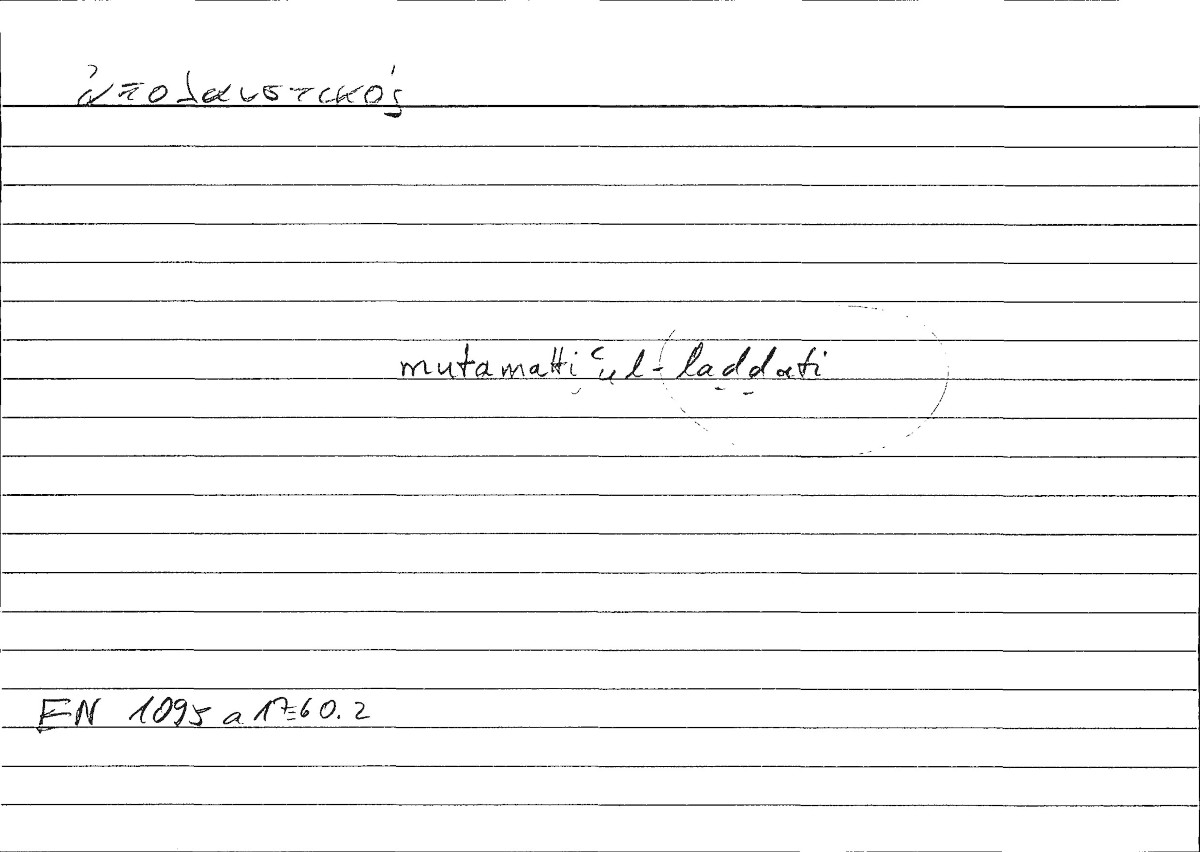 ἀπολαυστικός
mutamattiʿu l-laḏḏati
EN 1095 a 17=60.2